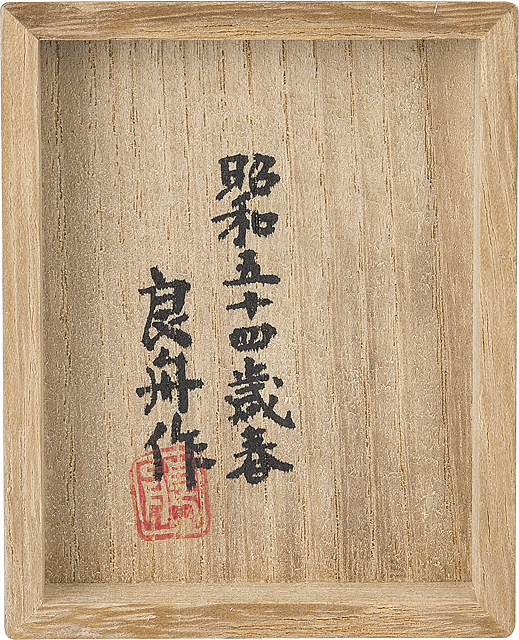 昭和五十四歳春
良舟作